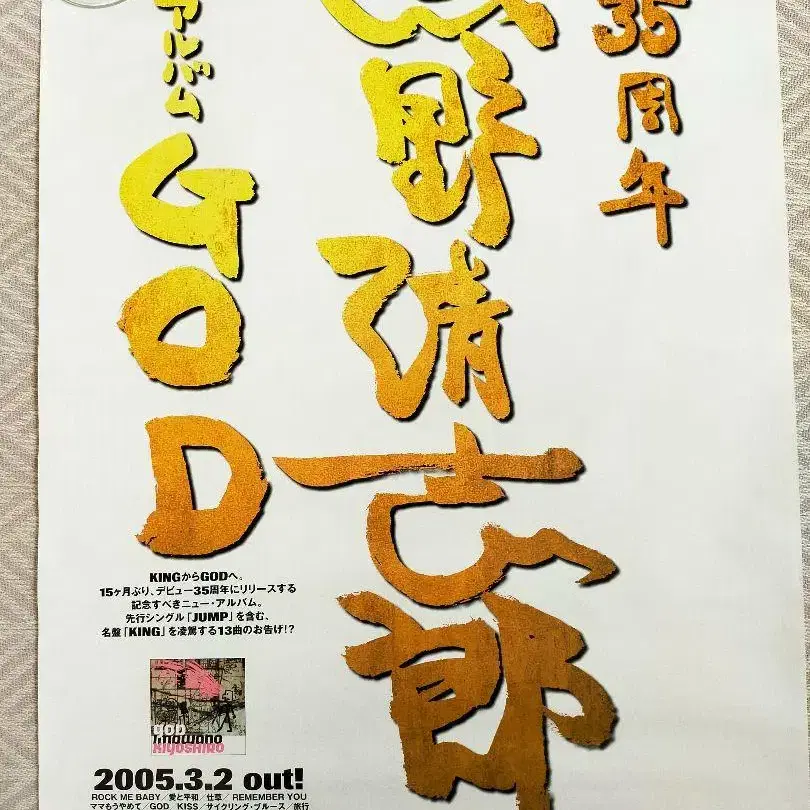 35周年
忌野清志郎
アルバム GOD
KINGからGODへ。
15ヶ月ぶり、デビュー35周年にリリースする
記念すべきニュー・アルバム。
先行シングル「JUMP」を含む、
名盤「KING」を凌駕する13曲のお告げ!?
GOD
IMAWANO
KIYOSHIRO
2005.3.2 out!
ROCK ME BABY/愛と平和/仕草/REMEMBER YOU
ママもうやめて/GOD KISS/サイクリング・ブルース/旅行